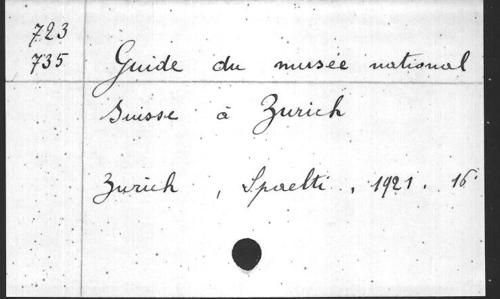 723
735 Guide du musée national
Suisse à Zurich
Zurich, Spaelti, 1921. 16